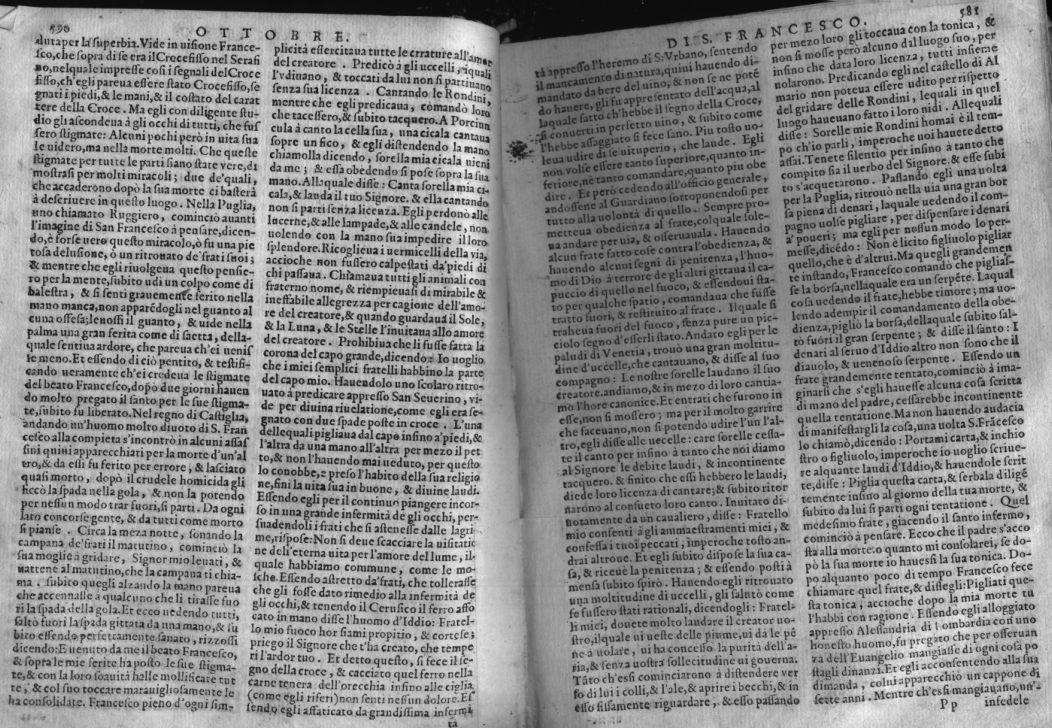 590
OTTOBRE.
uluta per la superbia. Vide in uisione France-
sco, che sopra di se era il Crocefisso nel Serafi
no, nelquale impresse così i segnali del Croce
fisso, ch'egli pareua essere stato Crocefisso, se
gnati i piedi, & le mani, & il costato del carat
tere della Croce. Ma egli con diligente stu-
dio gli ascondeua à gli occhi di tutti, che fus
sero stigmate: Alcuni però in uita sua
le uidero, ma nella morte molti. Che queste
stigmate per tutte le parti siano state vere, di
mostrasi per molti miracoli; due de'quali,
che accaderono dopò la sua morte ci basterà
à descriuere in questo luogo. Nella Puglia,
uno chiamato Ruggiero, cominciò auanti
l'imagine di San Francesco à pensare, dicen-
do, è forse uero questo miracolo, ò fu una pie
tosa delusione, ò un ritrouato de'frati suoi;
& mentre che egli riuolgeua questo pensie-
ro per la mente, subito udi un colpo come di
balestra, & si senti grauemente ferito nella
mano manca, non apparédogli nel guanto al
cuna offesa; leuossi il guanto, & uide nella
palma una gran ferita come di saetta, della-
quale sentiua ardore, che pareua ch'ei uenis
se meno. Et essendo di ciò pentito, & testifi-
cando ueramente ch'ei credeua le stigmate
del beato Francesco, dopò due giorni hauen
do molto pregato il santo per le sue stigma-
te, subito fu liberato. Nel regno di Castiglia,
andando un'huomo molto diuoto di S. Fran
cesco alla compieta s'incontrò in alcuni assas
sini quiui apparecchiati per la morte d'un'al
tro, & da essi fu ferito per errore, & lasciato
quasi morto, dopò il crudele homicida gli
ficcò la spada nella gola, & non la potendo
per nessun modo trar fuori, si parti. Da ogni
lato concorse gente, & da tutti come morto
si pianse. Circa la meza notte, sonando la
campana de'frati il matutino, cominciò la
sua moglie à gridare, Signor mio leuati, &
uattene al matutino, che la campana ti chia-
ma. subito quegli alzando la mano pareua
che accennasse à qualcuno che li tirasse fuo
ri la spada della gola. Et ecco uedendo tutti,
saltò fuori la spada gittata da una mano, & su
bito essendo perfettamente sanato, rizzossi
dicendo: E uenuto da me il beato Francesco,
& sopra le mie ferite ha posto le sue stigma-
te, & con la loro soauità halle mollificate tut
te, & col suo toccare marauigliosamente le
ha consolidate. Francesco pieno d'ogni sim-
plicità essercitaua tutte le crature all'amor
del creatore. Predicò à gli uccelli, iquali
l'vdiuano, & toccati da lui non si partiuano
senza sua licenza. Cantando le Rondini,
mentre che egli predicaua, comandò loro
che tacessero, & subito tacquero. A Porciun
cula à canto la cella sua, una cicala cantaua
sopre un fico, & egli distendendo la mano
chiamolla dicendo, sorella mia cicala uieni
da me; & essa obedendo si pose sopra la sua
mano. Alla quale disse: Canta sorella mia ci-
cala, & lauda il tuo Signore. & ella cantando
non si parti senza licenza. Egli perdonò alle
lucerne, & alle lampade, & alle candele, non
uolendo con la mano sua impedire il loro
splendore. Ricoglieua i uermicelli della via,
accioche non fussero calpestati da'piedi di
chi passaua. Chiamaua tutti gli animali con
fraterno nome, & riempieuasi di mirabile &
ineffabile allegrezza per cagione dell'amo-
re del creatore, & quando guardaua il Sole,
& la Luna, & le Stelle l'inuitaua allo amore
del creatore. Prohibiua che li fusse fatta la
corona del capo grande, dicendo: Io uoglio
che i miei semplici fratelli habbino la parte
del capo mio. Hauendolo uno scolaro ritro-
uato à predicare appresso San Seuerino, vi-
de per diuina riuelatione, come egli era se-
gnato con due spade poste in croce. L'una
dellequali pigliaua dal capo insino a'piedi, &
l'altra da una mano all'altra per mezo il pet
to, & non l'hauendo mai ueduto, per questo
lo conobbe, e preso l'habito della sua religio
ne, finì la uita sua in buone, & diuine laudi.
Essendo egli per il continuo piangere incor-
so in una grande infermità de gli occhi, per-
suadendoli i frati che si astenesse dalle lagri-
me, rispose: Non si deue scacciare la uisitatio
ne dell'eterna uita per l'amore del lume, il-
quale habbiamo commune, come le mo-
sche. Essendo astretto da'frati, che tollerasse
che gli fosse dato rimedio alla infermità de
gli occhi, & tenendo il Cerusico il ferro affo
cato in mano disse l'huomo d'Iddio: Fratel-
lo mio fuoco hor siami propitio, & cortese;
priego il Signore che t'ha creato, che tempe
ri l'ardor tuo. Et detto questo, si fece il se-
gno della croce, & cacciato quel ferro nella
carne tenera dell'orecchia insino alle ciglia,
(come egli riferì) non senti nessun dolore. Es
sendo egli affaticato da grandissima infermi
tà
581
DI S. FRANCESCO.
tà appresso l'heremo di S. Vrbano, sentendo
il mancamento di natura, quiui hauendo di-
mandato da bere del uino, & non se ne poté
do hauere, gli fu appresentato dell'acqua, al
laquale fatto ch'hebbe il segno della Croce,
si conuertì in perfetto uino, & subito come
l'hebbe assaggiato si fece sano. Piu tosto uo-
leua udire di se uituperio, che laude. Egli
non volse essere tanto superiore, quanto in-
feriore, nè tanto comandare, quanto piu obe
dire. Et però cedendo all'officio generale,
andossene al Guardiano sottoponendosi per
tutto alla volontà di quello. Sempre pro-
metteua obedienza al frate, col quale sole-
ua andare per uia, & osseruauala. Hauendo
alcun frate fatto cose contra l'obedienza, &
hauendo alcuni segni di penitenza, l'huo-
mo di Dio à terrore de gli altri gittaua il ca-
puccio di quello nel fuoco, & essendoui sta-
to per qualche spatio, comandaua che fusse
tratto fuori, & restituito al frate. Ilquale si
traheua fuori del fuoco, senza pure un pic-
ciolo segno d'esserli stato. Andato egli per le
paludi di Venetia, trouò una gran moltitu-
dine d'uccelle, che cantauano, & disse al suo
compagno: Le nostre sorelle laudano il suo
Creatore. andiamo, & in mezo di loro cantia-
mo l'hore canonice. Et entrati che furono in
esse, non si mossero; ma per il molto garrire
che faceuano, non si potendo udire l'un l'al-
tro, egli disse alle uccelle: care sorelle cessa-
te il canto per infino à tanto che noi diamo
al Signore le debite laudi, & incontinente
tacquero. & finito che essi hebbero le laudi,
diede loro licenza di cantare; & subito ritor
narono al consueto loro canto. Inuitato di-
uotamente da un caualiero, disse: Fratello
mio consenti à gli ammaestramenti miei, &
confessa i tuoi peccati, imperoche tosto an-
drai altroue. Et egli subito dispose la sua ca-
sa, & riceuè la penitenza; & essendo posti à
mensa subito spirò. Hauendo egli ritrouato
una moltitudine di uccelli, gli salutò come
se fussero stati rationali, dicendogli: Fratel-
li miei, douete molto laudare il creator uo-
stro, ilquale ui ueste delle piume, ui da le pé
ne à uolare, ui ha concesso la purità dell'a-
ria, & senza uostra sollecitudine ui gouerna.
Táto ch'essi cominciarono à distendere ver
so di lui i colli, & l'ale, & aprire i becchi, & in
esso fissamente riguardare, & esso passando
per mezo loro gli toccaua con la tonica, &
non si mosse però alcuno dal luogo suo, per
infino che data loro licenza, tutti insieme
uolarono. Predicando egli nel castello di Al
mario non poteua essere udito per rispetto
del gridare delle Rondini, lequali in quel
luogo haueuano fatto i loro nidi. Allequali
disse: Sorelle mie Rondini homai è il tem-
po ch'io parli, imperoche uoi hauete detto
assai. Tenete silentio per insino à tanto che
compito sia il uerbo del Signore. & esse subi
to s'acquetarono. Passando egli una uolta
per la Puglia, ritrouò nella uia una gran bor
sa piena di denari, laquale uedendo il com-
pagno uolse pigliare, per dispensare i denari
a' poueri; ma egli per nessun modo lo per-
messe, dicédo: Non è licito figliuolo pigliar
quello, che è d'altrui. Ma quegli grandemen
te instando, Francesco comandò che pigliasf-
se la borsa, nellaquale era un serpéte. Laqual
cosa uedendo il frate, hebbe timore; ma uo-
lendo adempir il comandamento della obe-
dienza, pigliò la borsa, dellaquale subito sal-
tò fuori il gran serpente; & disse il santo: I
denari al seruo d'Iddio altro non sono che il
diauolo, & uenenoso serpente. Essendo un
frate grandemente tentato, cominciò à ima-
ginarsi che s'egli hauesse alcuna cosa scritta
di mano del padre, cessarebbe incontinente
quella tentatione. Ma non hauendo audacia
di manifestargli la cosa, una uolta S. Frácesco
lo chiamò, dicendo: Portami carta, & inchio
stro o figliuolo, imperoche io uoglio scriue-
re alquante laudi d'Iddio, & hauendole scrit
te, disse: Piglia questa carta, & serbala dilige
temente insino al giorno della tua morte, &
subito da lui si parti ogni tentatione. Quel
medesimo frate, giacendo il santo infermo,
cominciò à pensare. Ecco che il padre s'acco
sta alla morte. o quanto mi consolarei, se do-
pò la sua morte io hauessi la sua tonica. Do-
po alquanto poco di tempo Francesco fece
chiamare quel frate, & dissegli: Pigliati que-
sta tonica, accioche dopò la mia morte tu
l'habbi con ragione. Essendo egli alloggiato
appresso Alessandria di Lombardia con uno
honesto huomo, fu pregato che per osseruan
za dell'Euangelio mangiasse di ogni cosa po
stagli dinanzi. Et egli acconsentendo alla sua
dimanda, colui apparecchiò un cappone di
sette anni. Mentre ch'essi mangiauano, un'-
Pp infedele